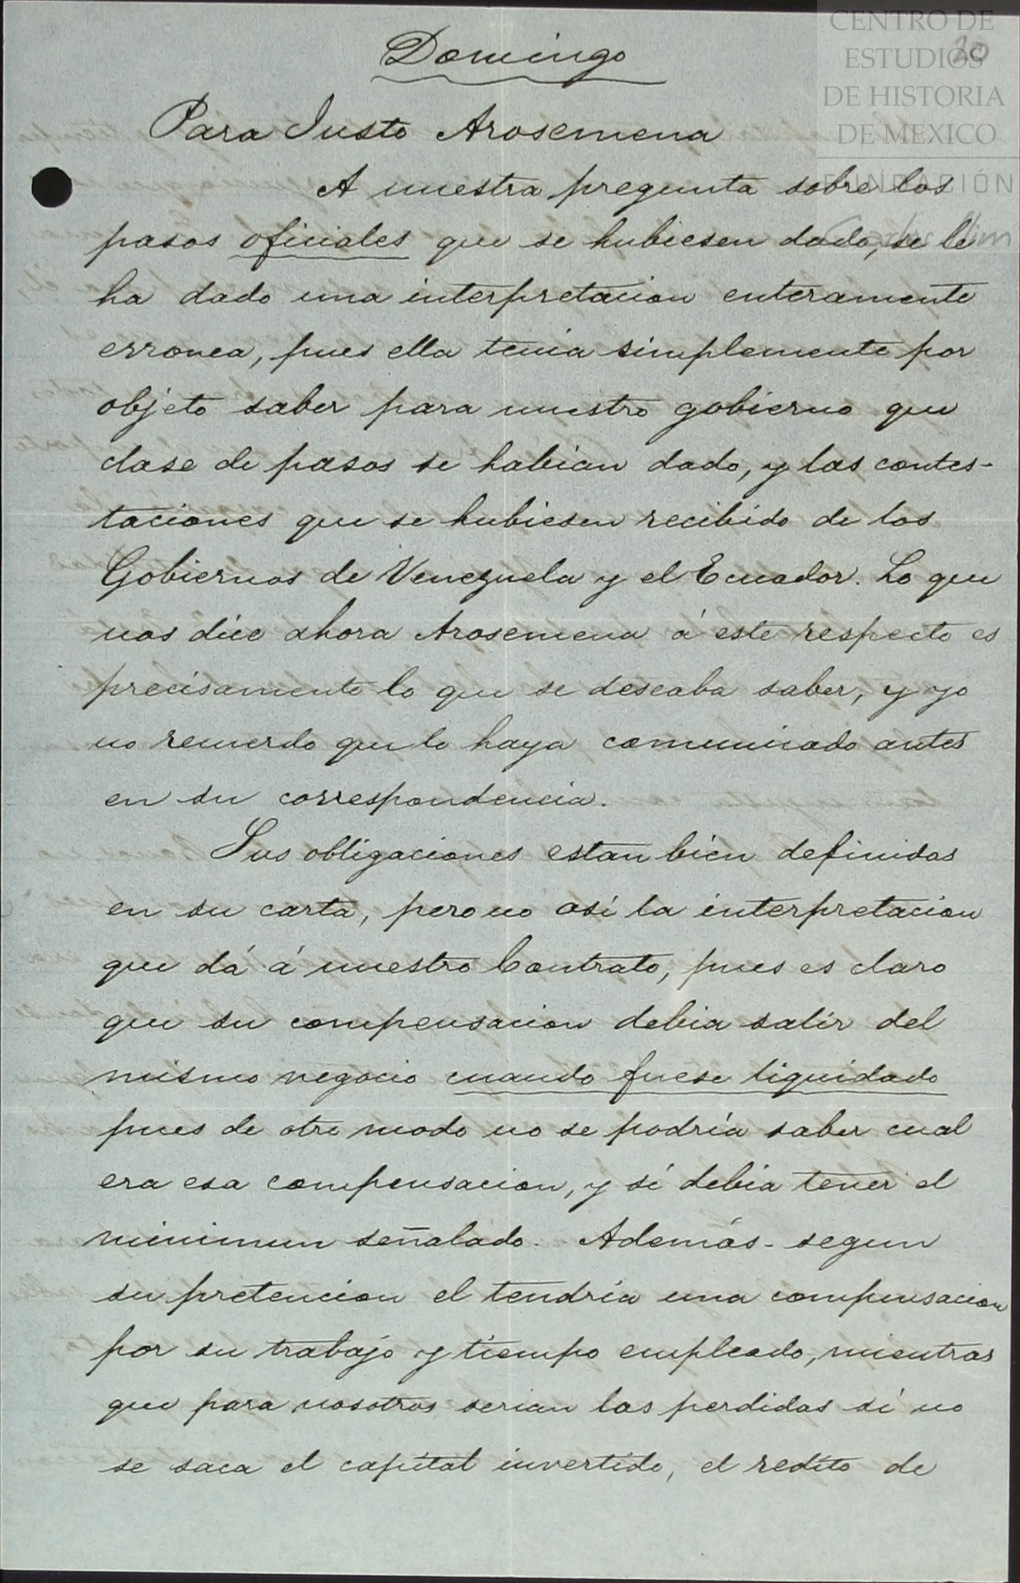 CENTRO DE
ESTUDIOS
DE HISTORIA
DE MEXICO
FUNDACIÓN
Carlos Slim
20
Domingo
Para Justo Arosemena
A nuestra pregunta sobre los
pasos oficiales que se hubiesen dado, se le
ha dado una interpretacion enteramente
erronea, pues ella tenia simplemente por
objeto saber para nuestro gobierno que
clase de pasos se habian dado, y las contes-
taciones que se hubiesen recibido de los
Gobiernos de Venezuela y el Ecuador. Lo que
nos dice ahora Arosemena á este respecto es
precisamente lo que se deseaba saber, y yo
no recuerdo que lo haya comunicado antes
en su correspondencia.
Sus obligaciones estan bien definidas
en su carta, pero no asi la interpretacion
que dá á nuestro Contrato, pues es claro
que su compensacion debia salir del
mismo negocio cuando fuese liquidado
pues de otro modo no se podría saber cual
era esa compensacion, y si debia tener el
minimun señalado. Además - segun
su pretencion el tendría una compensacion
por su trabajo y tiempo empleado, mientras
que para nosotros serian las perdidas si no
se saca el capital invertido, el redito de